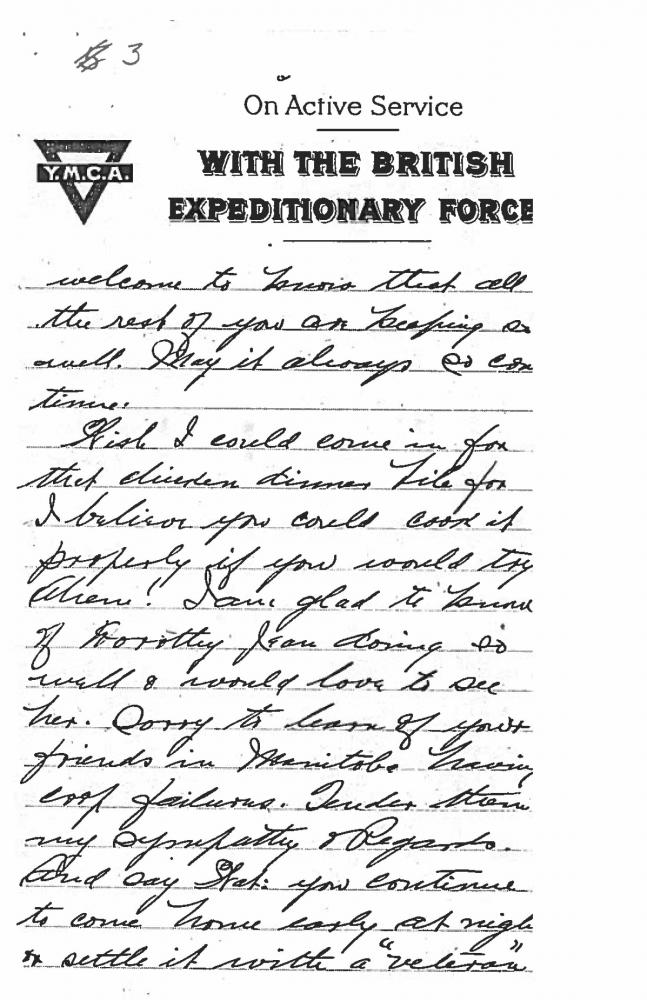 3
On Active Service
WITH THE BRITISH
Y.M.C.A.
EXPEDITIONARY FORCE
welcome to know that all
the rest of you are keeping so
well. May it always so con
tinue.
Wish I could come in for
that chicken dinner for
I believe you could cook it
properly if you would try
Ahem! I am glad to know
of Dorothy Jean doing so
well & would love to see
her. Sorry to learn of your
friends in Manitoba having
crop failures. Tender them
my sympathy & Regards.
And say you continue
to come home early at nigh
or settle it with a "veteran"